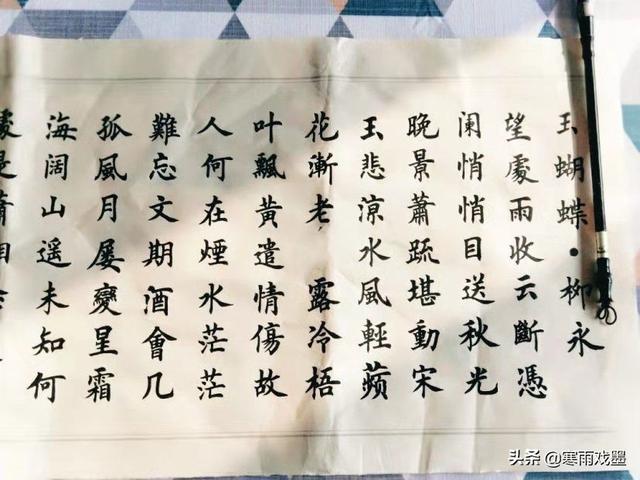 玉蝴蝶·柳永
望處雨收云斷憑
阑悄悄目送秋光
晚景蕭疏堪動宋
玉悲凉水風輕蘋
花漸老 露冷梧
叶飄黃遣情傷故
人何在煙水茫茫
難忘文期酒會几
孤風月屡變星霜
海阔山遥未知何
處是蕭
头条 @寒雨戏墨